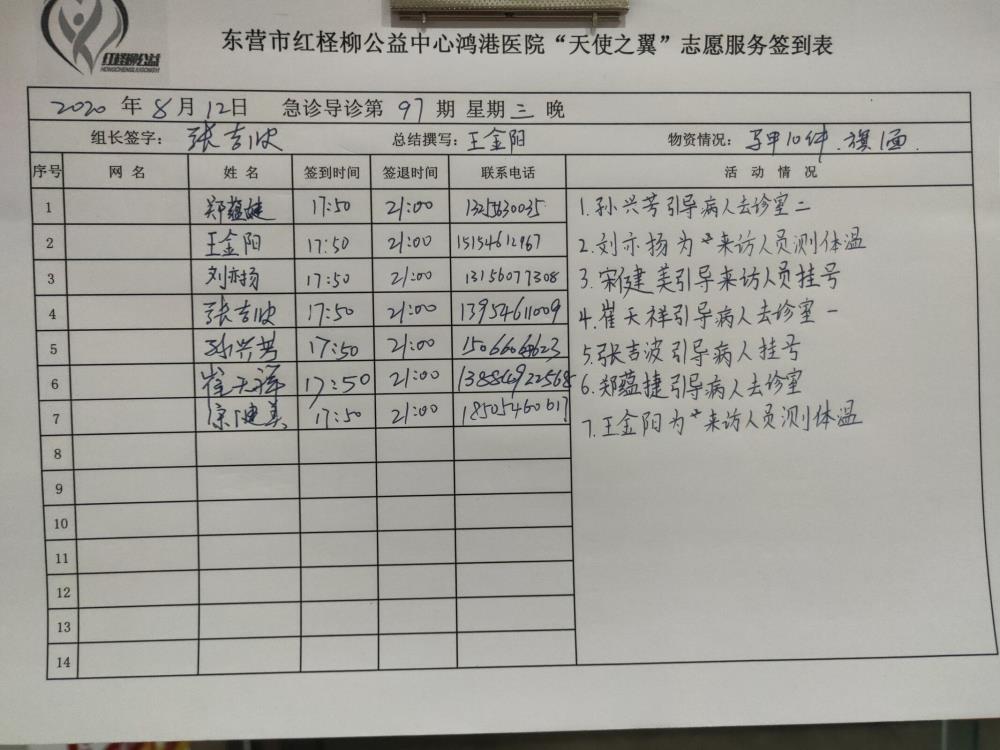 红柽柳公益
HONGCHENGLIUGONGYI
东营市红柽柳公益中心鸿港医院“天使之翼”志愿服务签到表
2020 年 8 月 12 日 急诊导诊第 97 期 星期 三 晚
组长签字： 张吉波 总结撰写： 王金阳 物资情况： 马甲10件.旗1面.
序号 网 名 姓 名 签到时间 签退时间 联系电话 活 动 情 况
1 郑蕴捷 17:50 21:00
2 王金阳 17:50 21:00 15154612967
3 刘亦扬 17:50 21:00 13156077308
4 张吉波 17:50 21:00 13954611009
5 孙兴芳 17:50 21:00
6 崔天祥 17:50 21:00
7 宋健美 17:50 21:00 18505460617
8
9
10
11
12
13
14
1.孙兴芳引导病人去诊室二
2.刘亦扬为来访人员测体温
3.宋健美引导来访人员挂号
4.崔天祥引导病人去诊室一
5.张吉波引导病人挂号
6.郑蕴捷引导病人去诊室
7.王金阳为来访人员测体温